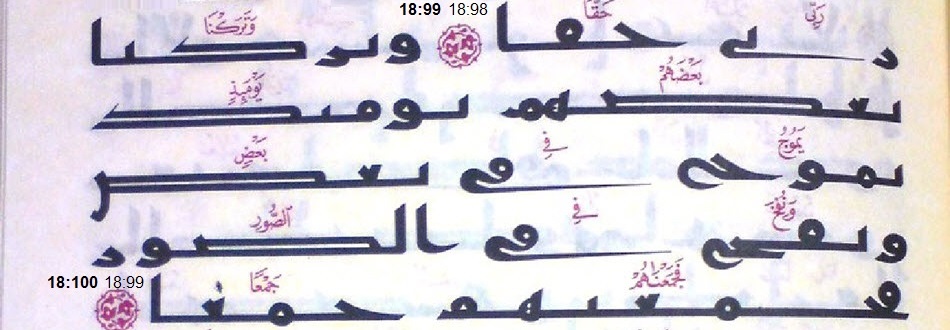 18:99 18:98
رَبِّي حَقًّا وَتَرَكْنَا
ربي حقا وتركنا
بَعْضَهُمْ يَوْمَئِذٍ
بعضهم يومئذ
يَمُوجُ فِي بَعْضٍ
يموج في بعض
وَنُفِخَ فِي الصُّورِ
ونفخ في الصور
18:100 18:99
فَجَمَعْنَاهُمْ جَمْعًا
فجمعنهم جمعا